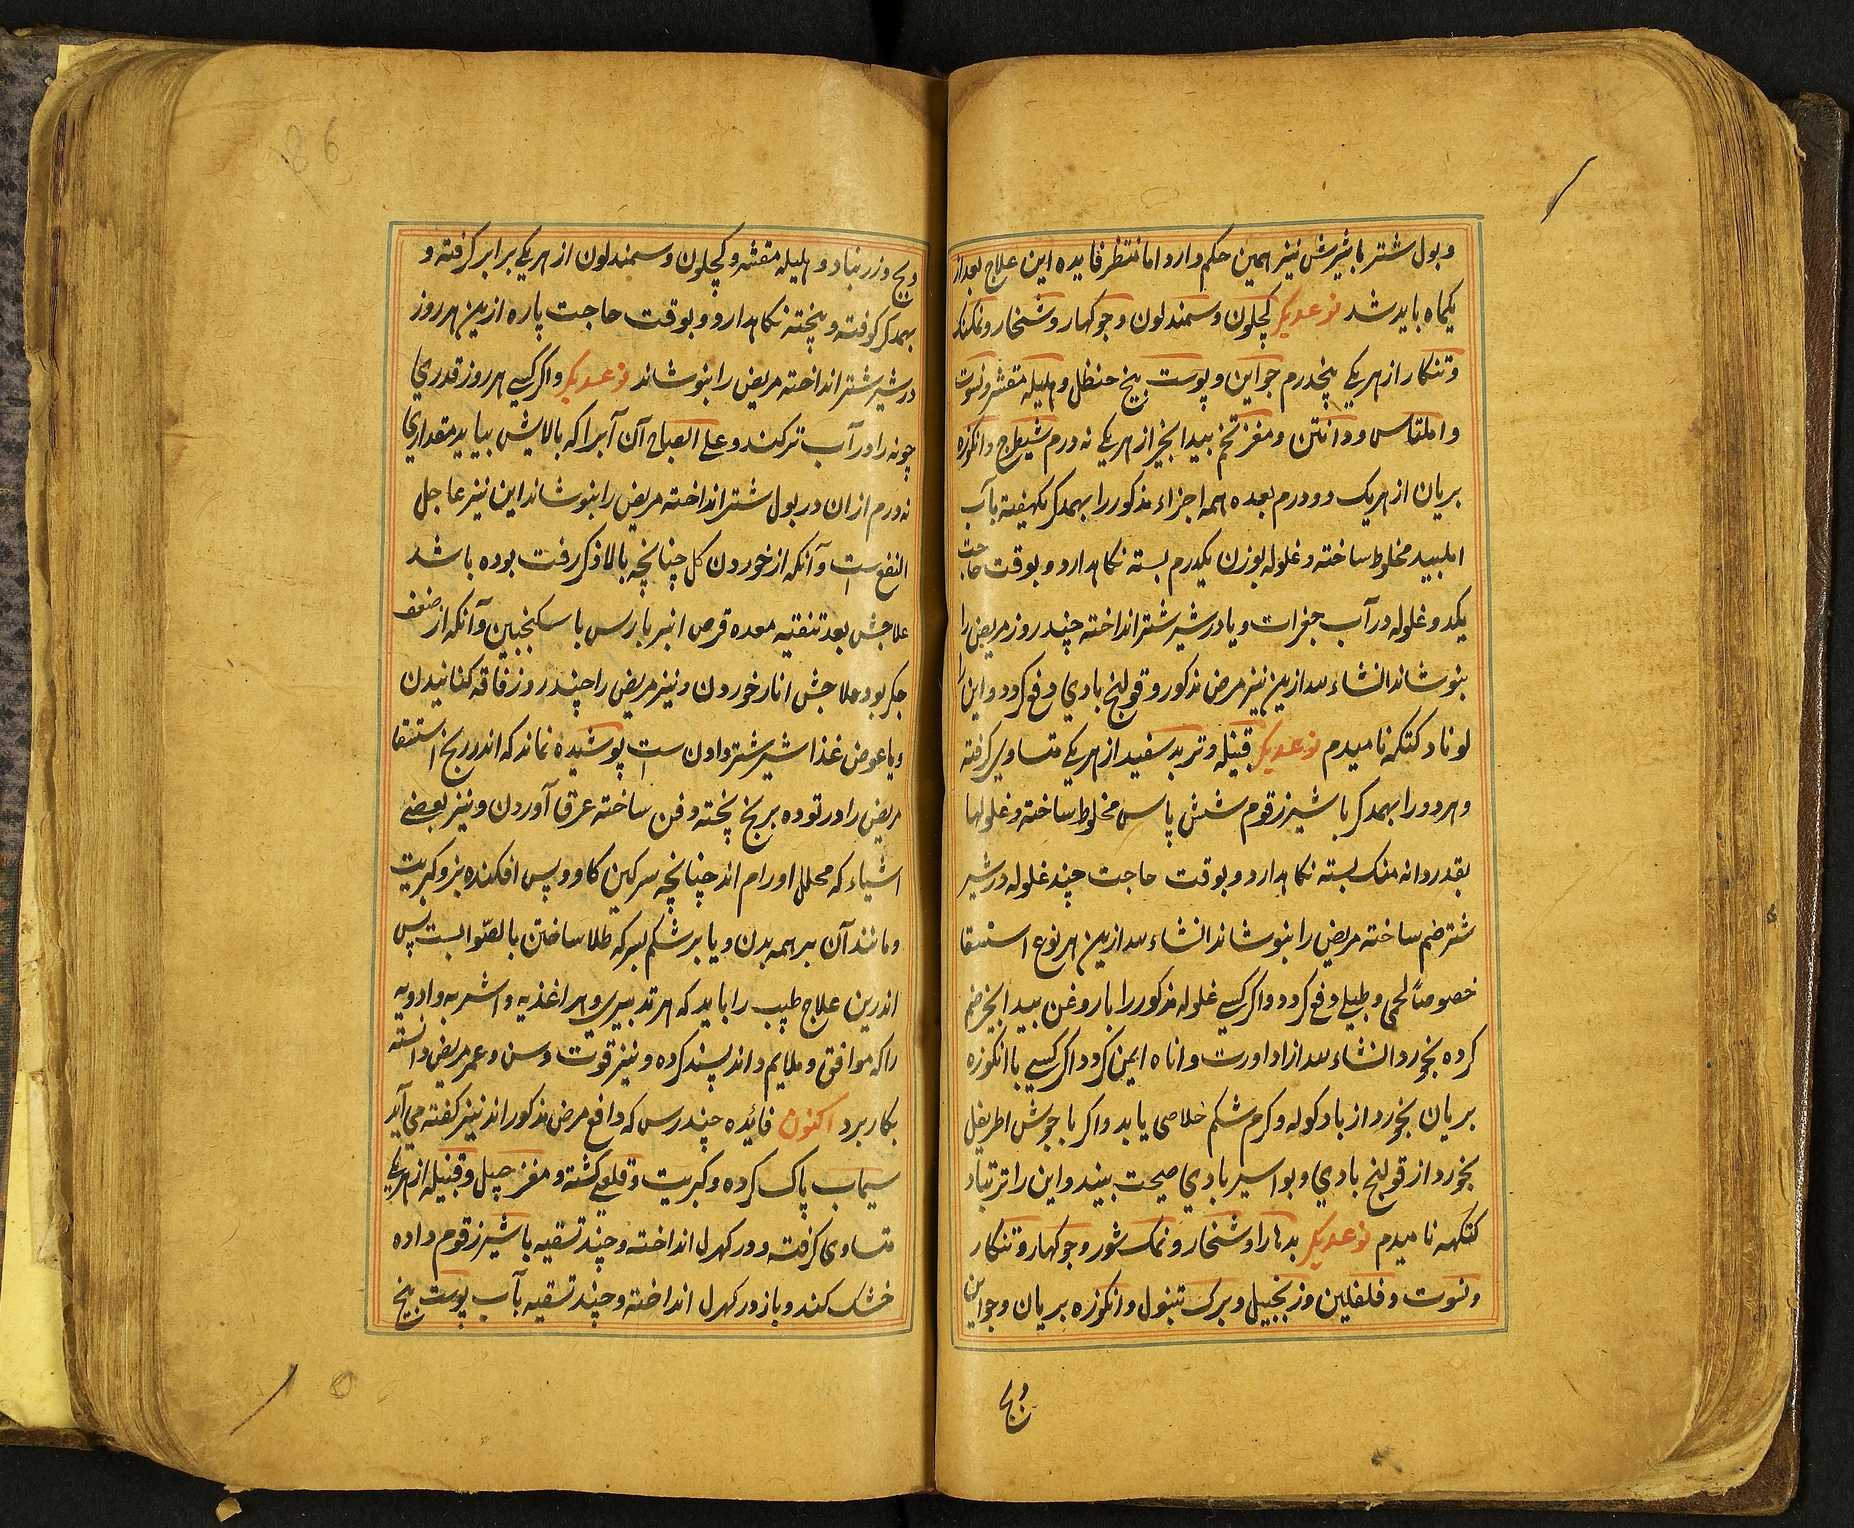 و بول شتر با شیرش نیز همین حکم دارد اما منتظر فایده این علاج بعد از
یکماه باید شد نوعدیگر کچلون و سمندلون و جوکهار و شخار و نمکسنک
و تنکار از هر یکی پنجدرم جواین و پوست بیخ حنظل و هلیله مقشر و نسوت
و املتاس و دانتن و مغز تخم بیدانجیر از هر یکی نه درم شیطرج و انکوزه
بریان از هر یک دو درم بعده همه اجزاء مذکور را بهمدکر بآب
املبید مخلوط ساخته و غلوله بوزن یکدرم بسته نکاهدارد و بوقت حاجت
یکدو غلوله در آب جغرات و یا در شیر شتر انداخته چند روز مریض را
بنوشاند انشاء الله ازین نیز مرض مذکور و قولنج بادی دفع کردد و این را
کتکه نامیدم نوعدیگر قنبیله و تربد سفید از هر یکی متساوی کرفته
و هر دو را بهمدکر با شیر زقوم شش پاس مخلوط ساخته و غلولها
بقدر دانه منک بسته نکاهدارد و بوقت حاجت چند غلوله در شیر
شتر ضم ساخته مریض را بنوشاند انشاء الله ازین هر نوع استسقا
خصوصاً لحمی و طبلی دفع کردد و اکر کسی غلوله مذکور را با روغن بیدانجیر ضم
کرده بخورد انشاء الله از اداورت و اناه ایمن کردد اکر کسی با انکوزه
بریان بخورد از باد کوله و کرم شکم خلاصی یابد و اکر با جوش اطریفل
بخورد از قولنج بادی و بواسیر بادی صحت بیند و این را
کتکهه نامیدم نوعدیگر بدهارا و شخار و نمک شور و جوکهار و تنکار
و نسوت و فلفلین و زنجبیل و برک تنبول و انکوزه بریان و جواین
وج
وج و زرنباد و هلیله مقشر و کچلون و سمندلون از هر یکی برابر کرفته و
بهمدکر کوفته و پخته نکاهدارد و بوقت حاجت پاره ازین هر روز
در شیر شتر انداخته مریض را بنوشاند نوعدیگر و اکر کسی هر روز قدری
چونه را در آب تر کند و علی الصباح آن آبرا که بالایش بیاید مقداری
نه درم از ان در بول شتر انداخته مریض را بنوشاند این نیز عاجل
النفع است و آنکه از خوردن کل چنانچه بالا ذکر رفت بوده باشد
علاجش بعد تنقیه معده قرص انبرباریس با سکنجبین و آنکه از ضعف
جکر بود علاجش انار خوردن و نیز مریض را چند روز فاقه کنانیدن
و یا عوض غذا شیر شتر دادن ست پوشیده نماند که اندر رنج استسقا
مریض را در توده برنج پخته دفن ساخته عرق آوردن و نیز بعضی
اشیاء که محلل اورام اند چنانچه سرکین کاو و پس افکنده بز و کبریت
و مانند آن بر همه بدن و یا بر شکم بسرکه طلا ساختن بالصوابست پس
اندرین علاج طبیب را باید که هر تدبیری و هر اغذیه و اشربه و ادویه
را که موافق و ملایم داند پسند کرده و نیز قوت و سن و عمر مریض دانسته
بکار برد اکنون فائیده چند رس که دافع مرض مذکور اند نیز کفته می آید
سیماب پاک کرده و کبریت و قلعی کشته و مغز چپل و قنبیله از هر یکی
متساوی کرفته و در کهرل انداخته و چند تسقیه با شیر زقوم داده
خشک کند و باز در کهرل انداخته و چند تسقیه بآب پوست بیخ